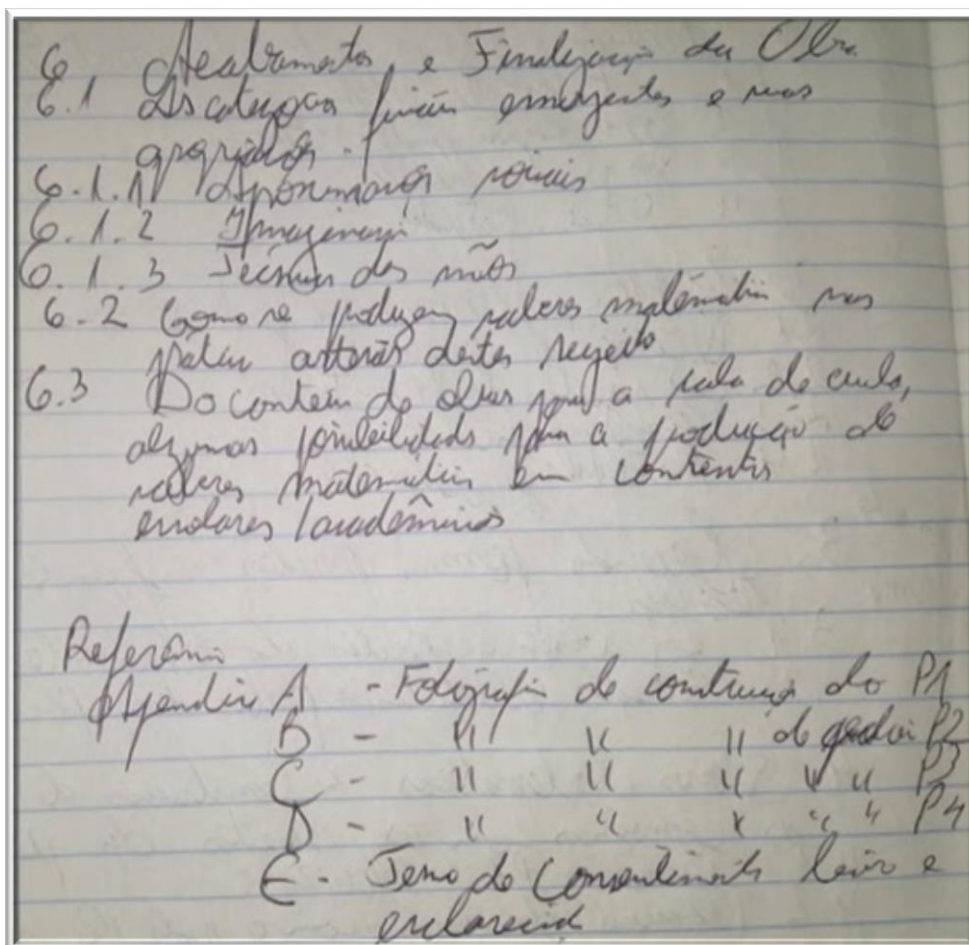 6. Acabamentos e Finalização da Obra
6.1 As categorias finais emergentes e suas
6.1.1 Aproximações sociais
6.1.2 Imaginação
6.1.3 Técnicas das mãos
6.2 Como se produzem saberes matemáticos nas
destes sujeitos
6.3 Do contexto de obras para a sala de aula,
algumas possibilidades para a produção de
saberes matemáticos em contextos
escolares/acadêmicos
Referência
Apendice A - Fotografia de construção do P1
B - " " " de P2
C - " " " " " P3
D - " " " " " P4
E - Termo de Consentimento livre e
esclarecido